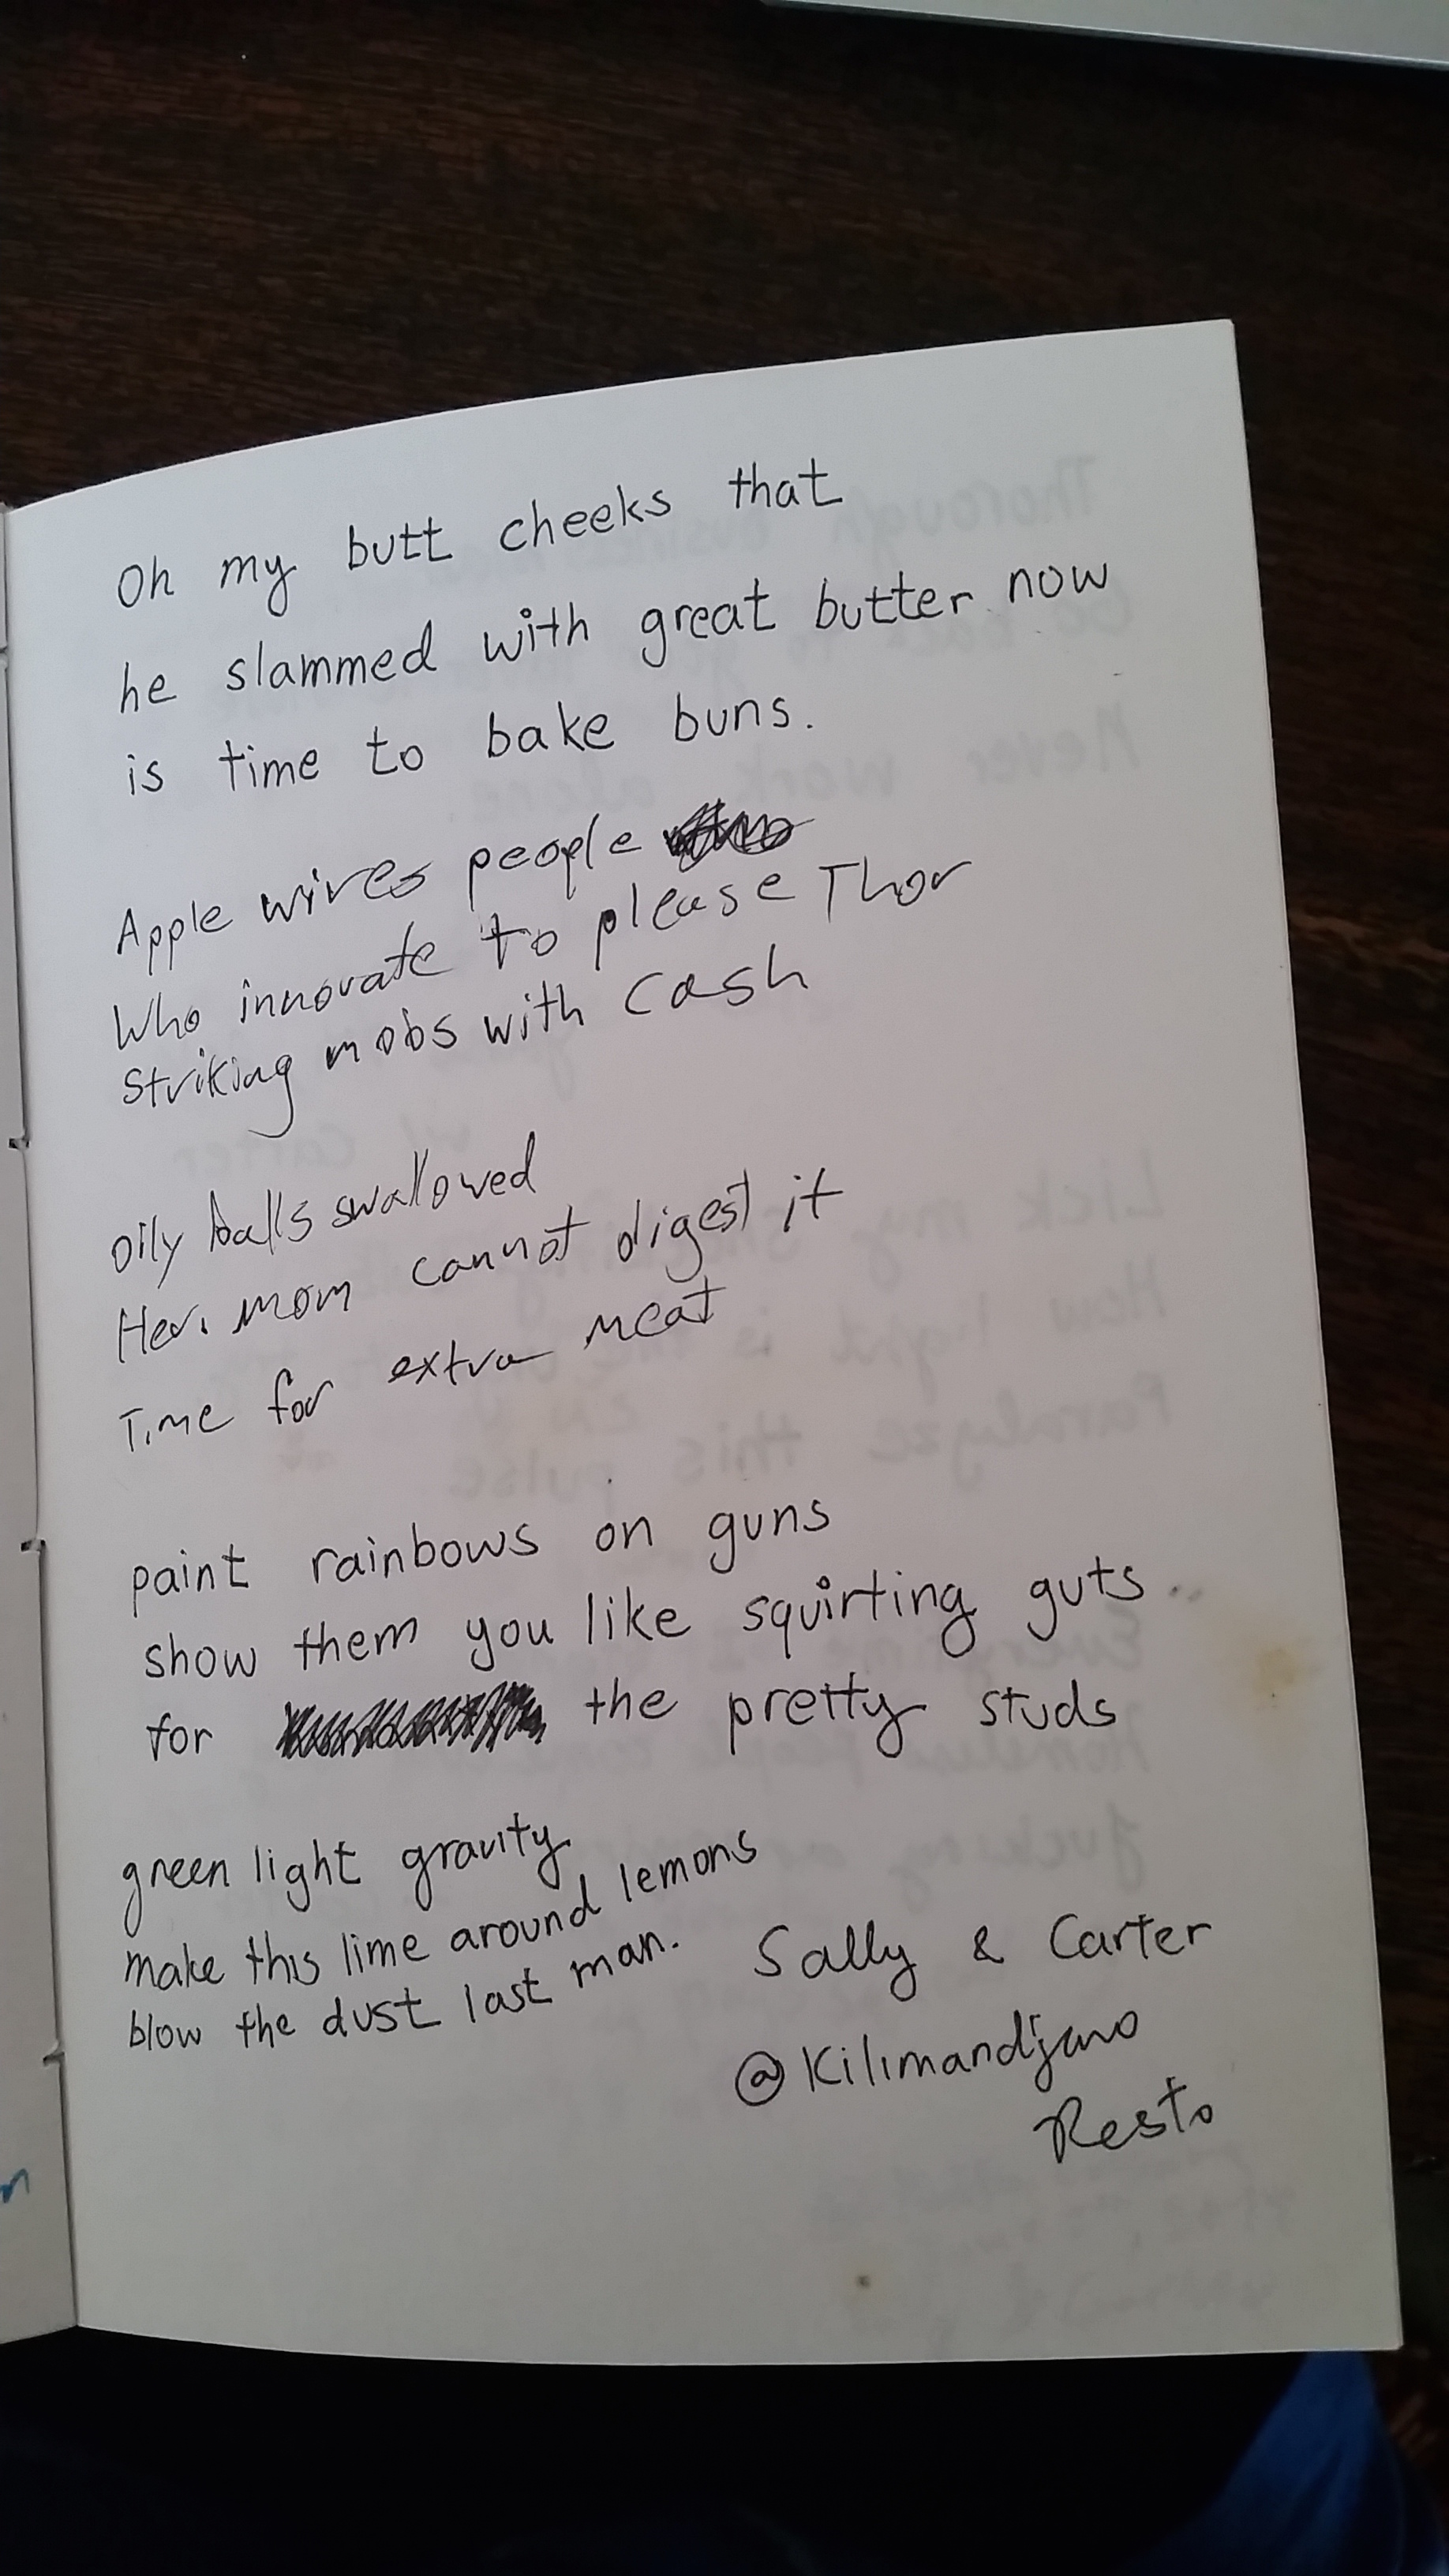 Oh my butt cheeks that
he slammed with great butter now
is time to bake buns.
Apple wires people
Who innovate to please Thor
Striking mobs with cash
Oily balls swallowed
Her mom cannot digest it
Time for extra meat
paint rainbows on guns
show them you like squirting guts..
for the pretty studs
green light gravity
make this lime around lemons
blow the dust last man.
Sally & Carter
@Kilimandjaro
Resto